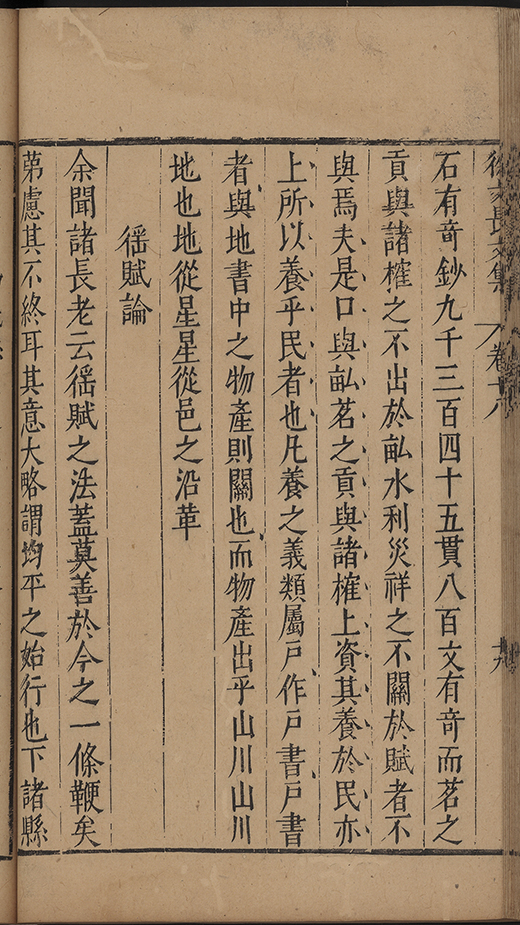 徐文長文集 卷十八
石有奇鈔九千三百四十五貫八百文有奇而茗之
貢與諸榷之不出於畝水利災祥之不關於賦者不
與焉夫是口與畝茗之貢與諸榷上資其養於民亦
上所以養乎民者也凡養之義類屬戶作戶書戶書
者與地書中之物產則關也而物產出乎山川山川
地也地從星星從邑之沿革
徭賦論
余聞諸長老云徭賦之法蓋莫善於今之一條鞭矣
第慮其不終耳其意大略謂均平之始行也下諸縣